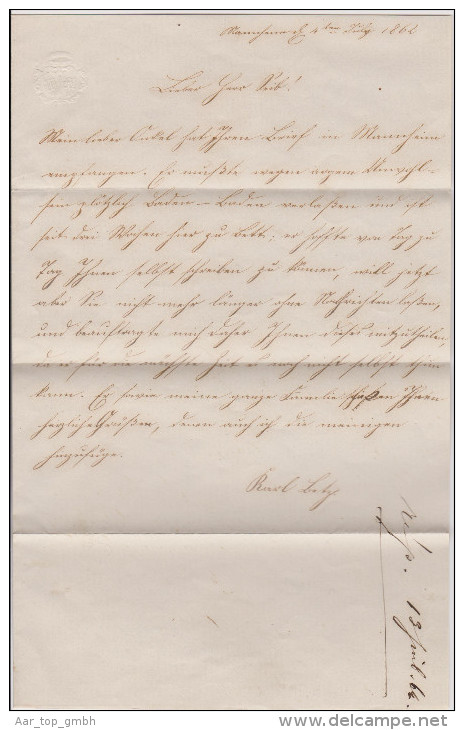 Mannheim d 4ten July 1862
Lieber Herr Seib!
Mein lieber Onkel hat Ihren Brief in Mannheim
empfangen. Er mußte wegen argem Unwohl-
sein plötzlich Baden-Baden verlaßen und ist
seit drei Wochen hier zu Bett; er hoffte von Tag zu
Tag Ihnen selbst schreiben zu können, will jetzt
aber Sie nicht mehr länger ohne Nachrichten laßen,
und beauftragte mich daher Ihnen dieses mitzutheilen,
da er für die nächste Zeit es noch nicht selbst thun
kann. Er sowie meine ganze Familie laßen Ihnen
herzlich Grüßen, denen auch ich die meinigen
hinzufüge.
Karl Betz
13 Juli 62.
Aar_top_gmbh